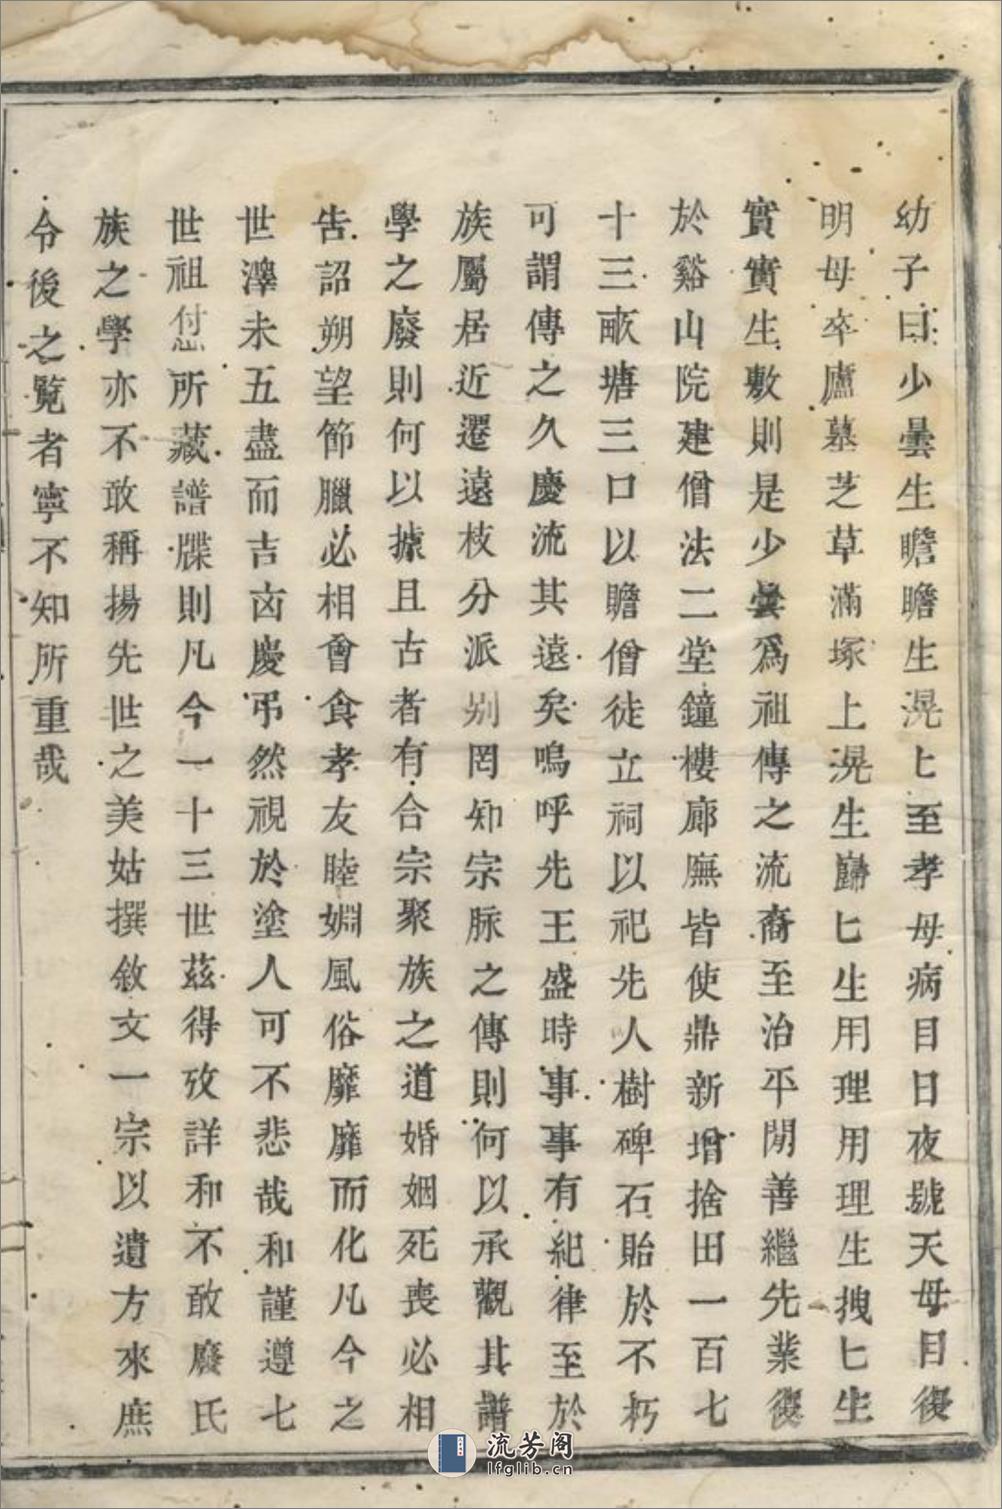 幼子曰少曇生瞻瞻生滉匕至孝母病目日夜號天母目後
明母卒廬墓芝草滿塚上滉生巋匕生用理用理生揆匕生
實實生敷則是少曇爲祖傳之流裔至治平閒善繼先業復
於谿山院建僧法二堂鐘樓廊廡皆使鼎新增捨田一百七
十三畞塘三口以贍僧徒立祠以祀先人樹碑石貽於不朽
可謂傳之久慶流其遠矣嗚呼先王盛時事事有紀律至於
族屬居近遷遠枝分派別罔知宗脉之傳則何以承觀其譜
學之廢則何以據且古者有合宗聚族之道婚姻死喪必相
告詔朔望節臘必相會食孝友睦婣風俗靡靡而化凡今之
世澤未五盡而吉㐫慶弔然視於塗人可不悲哉和謹遵七
世祖付所藏譜牒則凡今一十三世茲得攷詳和不敢廢氏
族之學亦不敢稱揚先世之美姑撰敘文一宗以遺方來庶
令後之覧者寧不知所重哉
流芳阁
lfglib.cn